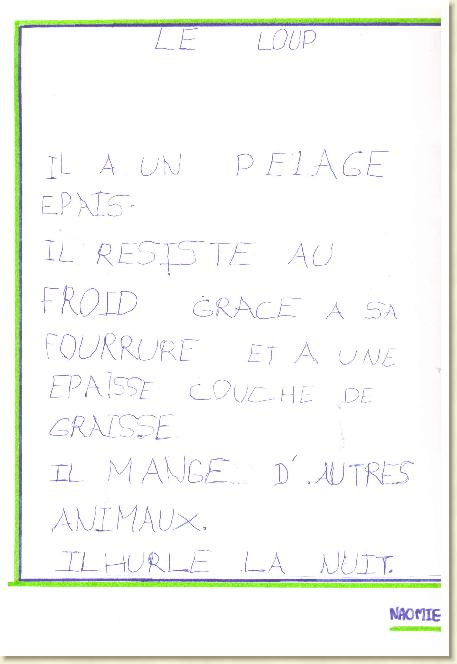 LE LOUP
IL A UN PELAGE
EPAIS.
IL RESISTE AU
FROID GRACE A SA
FOURRURE ET A UNE
EPAISSE COUCHE DE
GRAISSE
IL MANGE D'AUTRES
ANIMAUX.
IL HURLE LA NUIT.
NAOMIE